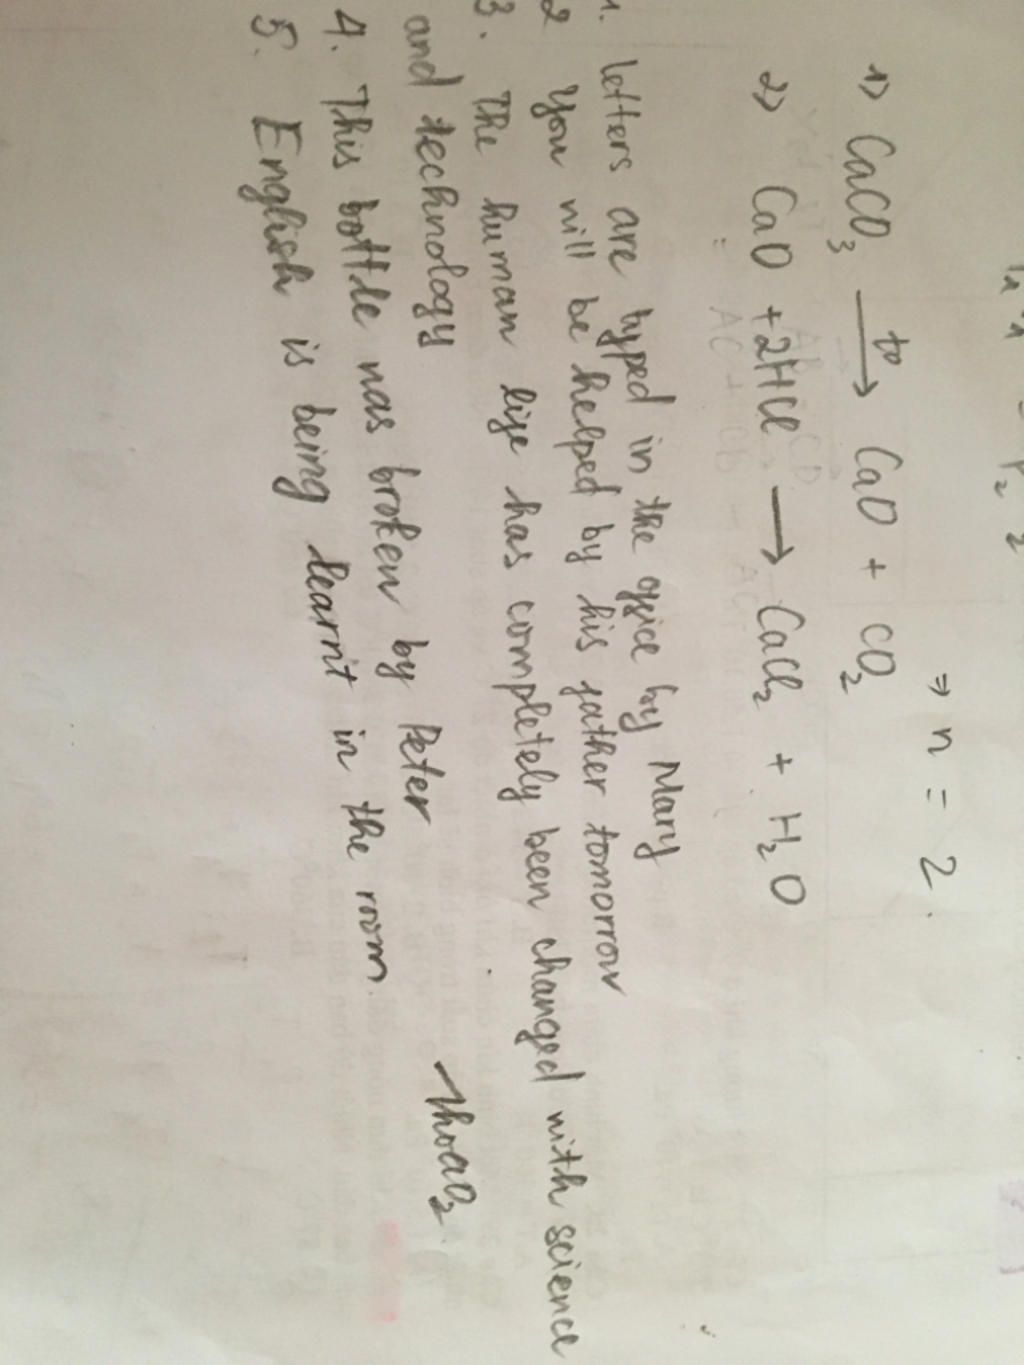 ⇒ n = 2.
1) CaCO3 —t°→ CaO + CO2
2) CaO + 2HCl → CaCl2 + H2O
1. letters are typed in the office by Mary
2 You will be helped by his father tomorrow
3. The human life has completely been changed with science
and technology
4. This bottle was broken by Peter
5. English is being learnt in the room.